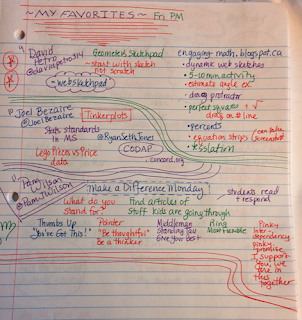 ~MY FAVORITES~ Fri PM
David Petro
@davidpetro314
Geometer's Sketchpad
- start with sketch not scratch
- websketchpad
engaging-math.blogspot.ca
• dynamic web sketches
• 5-10 min activity
• estimate angle ex.
• drag protractor
• perfect squares + √
drag on # line
• percents
• equation strips
can take screenshot
Joel Bezaire
@JoelBezaire
Tinkerplots
Stats standards in MS
@RyanSethJones
Lego Pieces vs Price data
CODAP
concord.org
Pam Wilson
@pamjwilson
Make a Difference Monday
What do you stand for?
Find articles of stuff kids are going through
students read + respond
Thumbs Up
"You've Got This!"
Pointer
"Be thoughtful"
Be a thinker
Middleman
Standing
Give your best
Ring
Most
Pinky
Inter-dependency
pinky promise
I support you, we are in this together